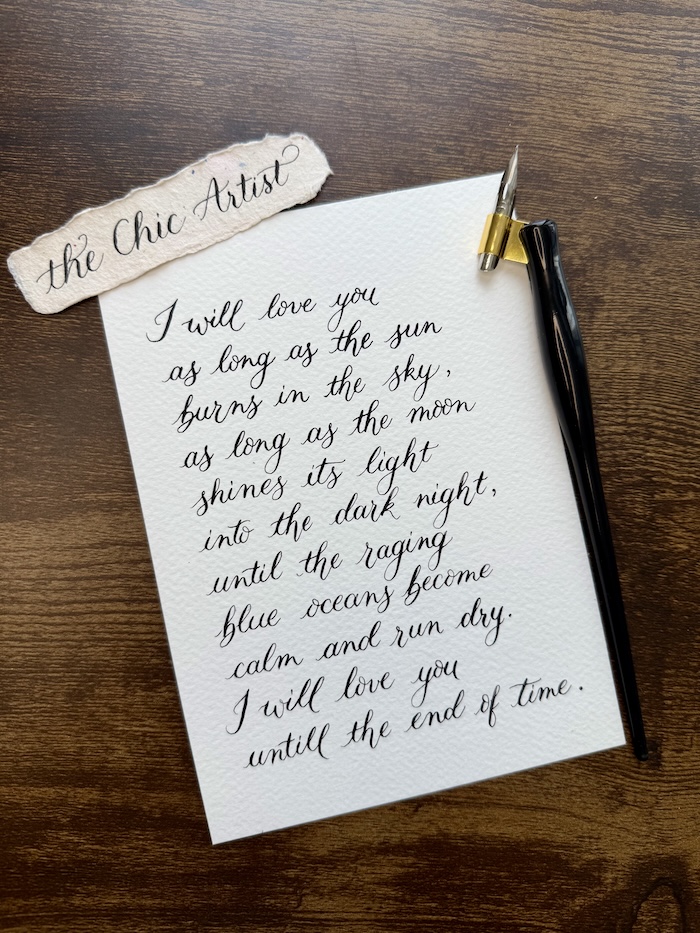 the Chic Artist
I will love you
as long as the sun
burns in the sky,
as long as the moon
shines its light
into the dark night,
until the raging
blue oceans become
calm and run dry.
I will love you
untill the end of time.